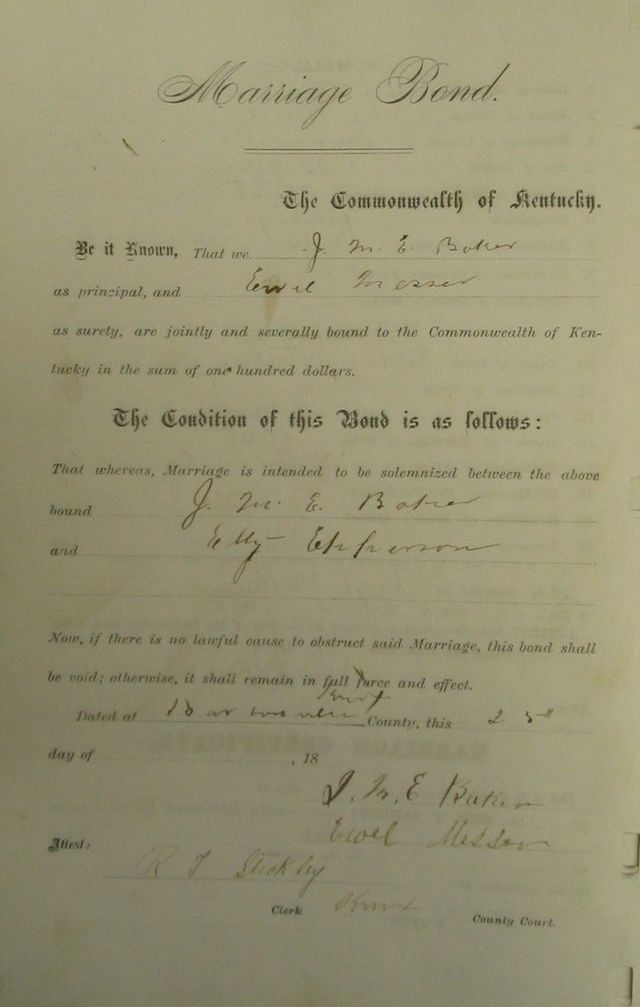 Marriage Bond.
The Commonwealth of Kentucky.
Be it Known, That we J. M. E. Baker
as principal, and Ewel Messer
as surety, are jointly and severally bound to the Commonwealth of Ken-
tucky in the sum of one hundred dollars.
The Condition of this Bond is as follows:
That whereas, Marriage is intended to be solemnized between the above
bound J. M. E. Baker
and Elly Epperson
Now, if there is no lawful cause to obstruct said Marriage, this bond shall
be void; otherwise, it shall remain in full force and effect.
Knox
Dated at County, this 25"
day of , 18
J. M. E Baker
Ewel Messer
Attest:
R T Stickley
Clerk Knox County Court.